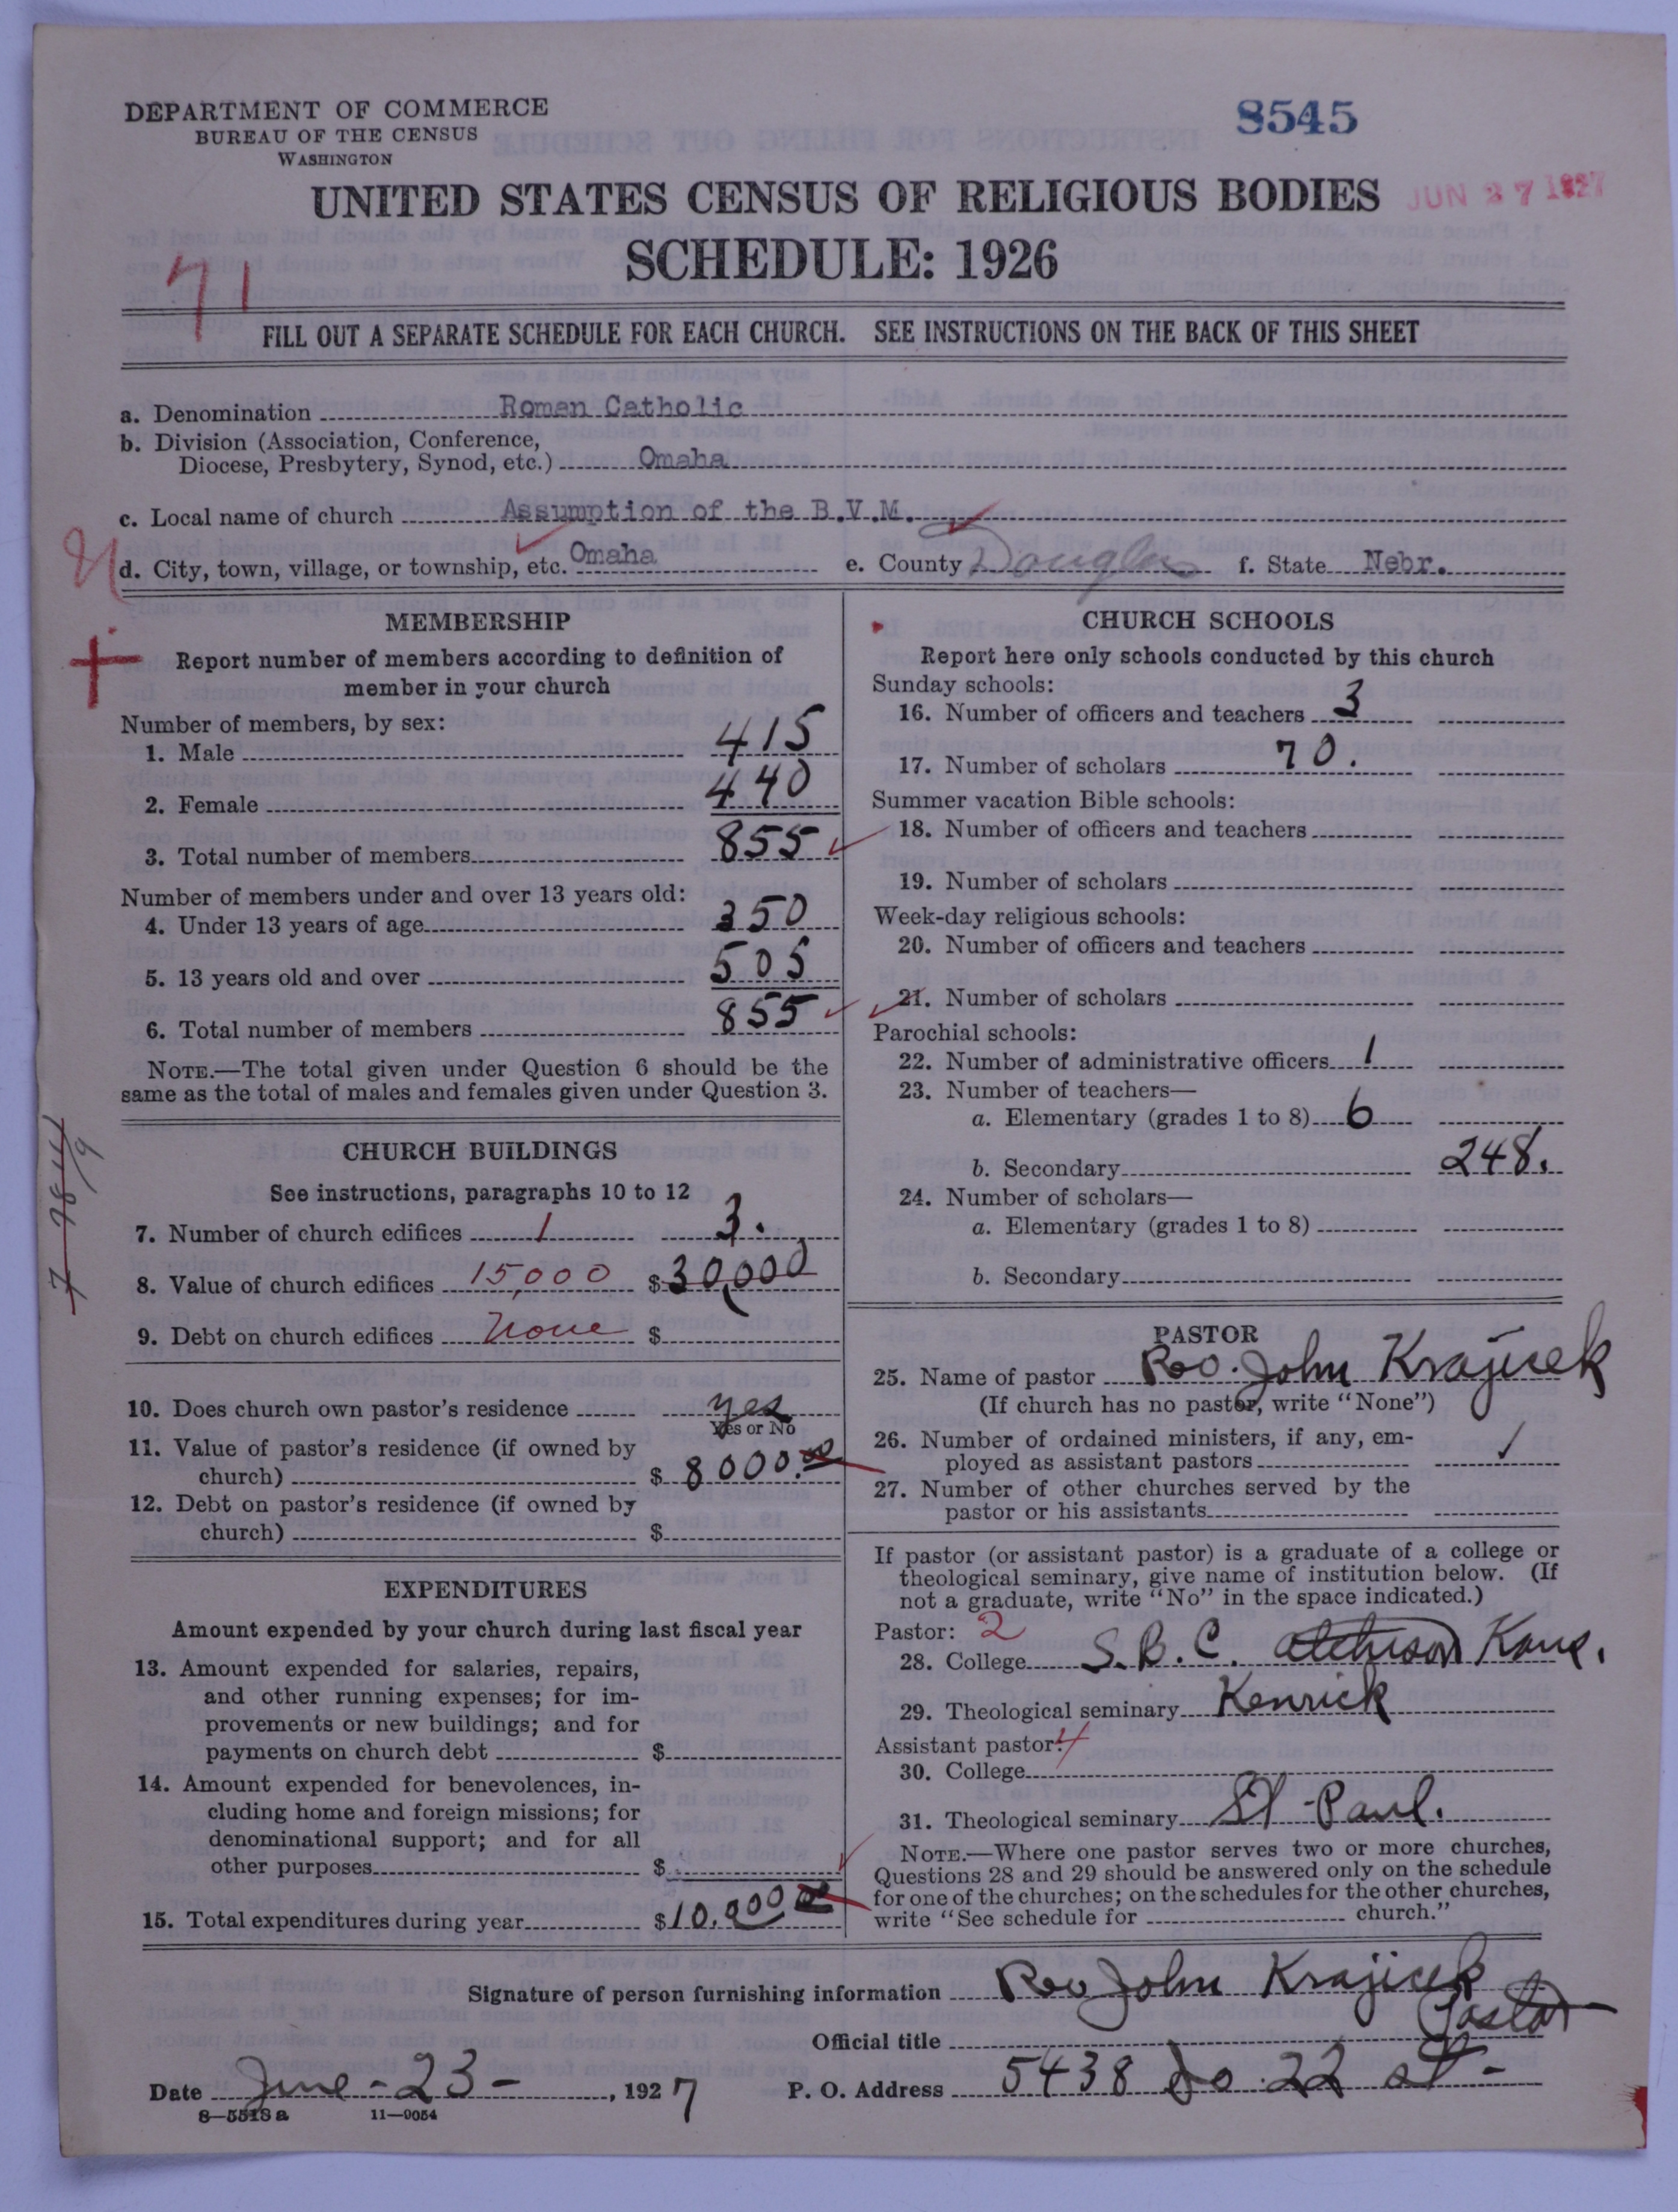 DEPARTMENT OF COMMERCE
BUREAU OF THE CENSUS
WASHINGTON
8545
UNITED STATES CENSUS OF RELIGIOUS BODIES
JUN 27 1927
SCHEDULE: 1926
71
FILL OUT A SEPARATE SCHEDULE FOR EACH CHURCH. SEE INSTRUCTIONS ON THE BACK OF THIS SHEET
a. Denomination Roman Catholic
b. Division (Association, Conference,
Diocese, Presbytery, Synod, etc.) Omaha
c. Local name of church Assumption of the B.V.M.
d. City, town, village, or township, etc. Omaha e. County Douglas f. State Nebr.
MEMBERSHIP
Report number of members according to definition of
member in your church
Number of members, by sex:
1. Male 415
2. Female 440
3. Total number of members 855
Number of members under and over 13 years old:
4. Under 13 years of age 350
5. 13 years old and over 505
6. Total number of members 855
NOTE.—The total given under Question 6 should be the
same as the total of males and females given under Question 3.
CHURCH BUILDINGS
See instructions, paragraphs 10 to 12
7. Number of church edifices 1 3.
8. Value of church edifices 15,000 $30,000
9. Debt on church edifices None $
10. Does church own pastor's residence yes
Yes or No
11. Value of pastor's residence (if owned by
church) $ 8000.00
12. Debt on pastor's residence (if owned by
church) $
EXPENDITURES
Amount expended by your church during last fiscal year
13. Amount expended for salaries, repairs,
and other running expenses; for im-
provements or new buildings; and for
payments on church debt $
14. Amount expended for benevolences, in-
cluding home and foreign missions; for
denominational support; and for all
other purposes $
15. Total expenditures during year $10,000.00
CHURCH SCHOOLS
Report here only schools conducted by this church
Sunday schools:
16. Number of officers and teachers 3
17. Number of scholars 70.
Summer vacation Bible schools:
18. Number of officers and teachers
19. Number of scholars
Week-day religious schools:
20. Number of officers and teachers
21. Number of scholars
Parochial schools:
22. Number of administrative officers 1
23. Number of teachers—
a. Elementary (grades 1 to 8) 6
b. Secondary 248.
24. Number of scholars—
a. Elementary (grades 1 to 8)
b. Secondary
PASTOR
25. Name of pastor Rev. John Krajicek
(If church has no pastor, write "None")
26. Number of ordained ministers, if any, em-
ployed as assistant pastors 1
27. Number of other churches served by the
pastor or his assistants
If pastor (or assistant pastor) is a graduate of a college or
theological seminary, give name of institution below. (If
not a graduate, write "No" in the space indicated.)
Pastor: 2
28. College S.B.C. Atchison Kans.
29. Theological seminary Kenrick
Assistant pastor: 4
30. College
31. Theological seminary St Paul.
NOTE.—Where one pastor serves two or more churches,
Questions 28 and 29 should be answered only on the schedule
for one of the churches; on the schedules for the other churches,
write "See schedule for church."
Signature of person furnishing information Rev John Krajicek
Official title Pastor
Date June - 23 - , 1927 P. O. Address 5438 So 22 st -
8—5518a 11—9054